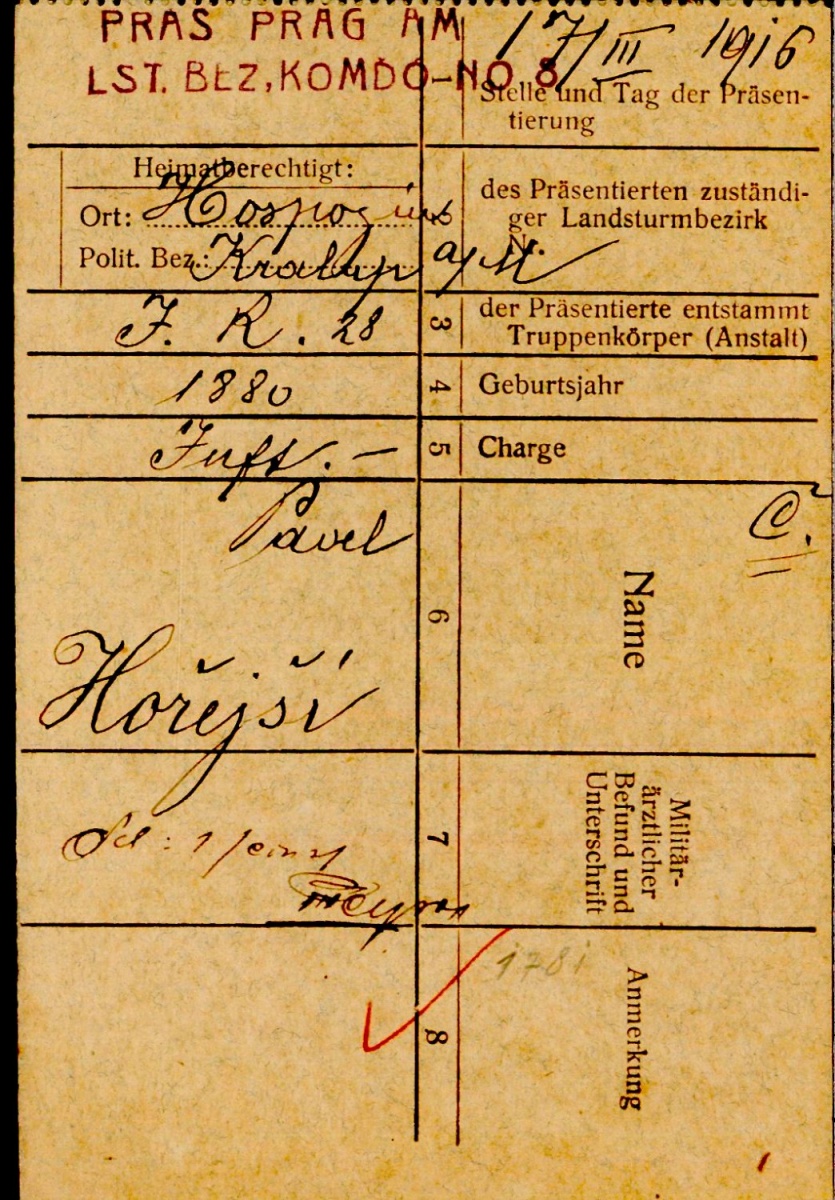 PRÄS PRAG AM 17/III 1916
LST. BEZ, KOMDO NO 8
1
Stelle und Tag der Präsen-
tierung
Heimatberechtigt:
Ort:
Polit. Bez.: Kralup a/M
2
des Präsentierten zuständi-
ger Landsturmbezirk
Nr.
J. R. 28
3
der Präsentierte entstammt
Truppenkörper (Anstalt)
1880
4
Geburtsjahr
Inft. —
5
Charge
Pavel
Hořejší
6
Name
Č.
7
Militär-
ärztlicher
Befund und
Unterschrift
8
Anmerkung
1781